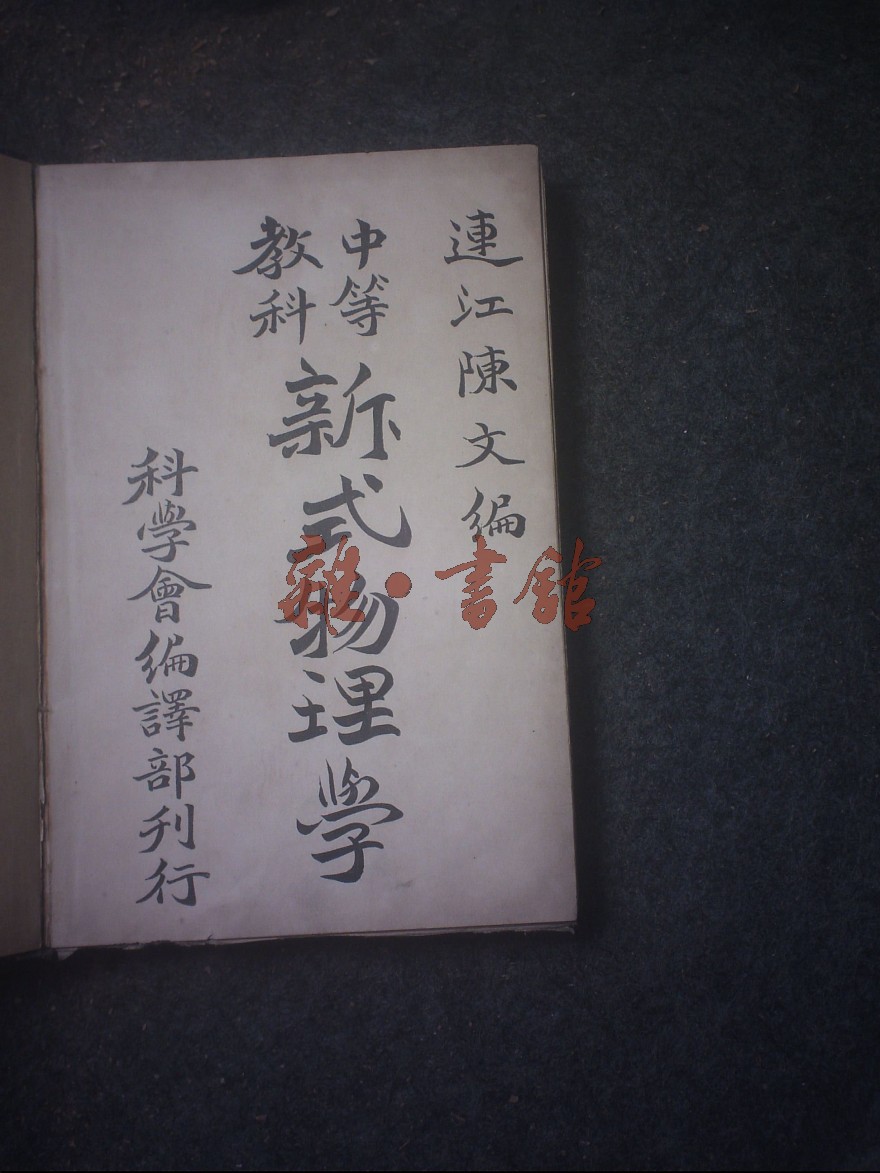 連江陳文編
中等
教科
新式物理學
科學會編譯部刊行
雜·書館